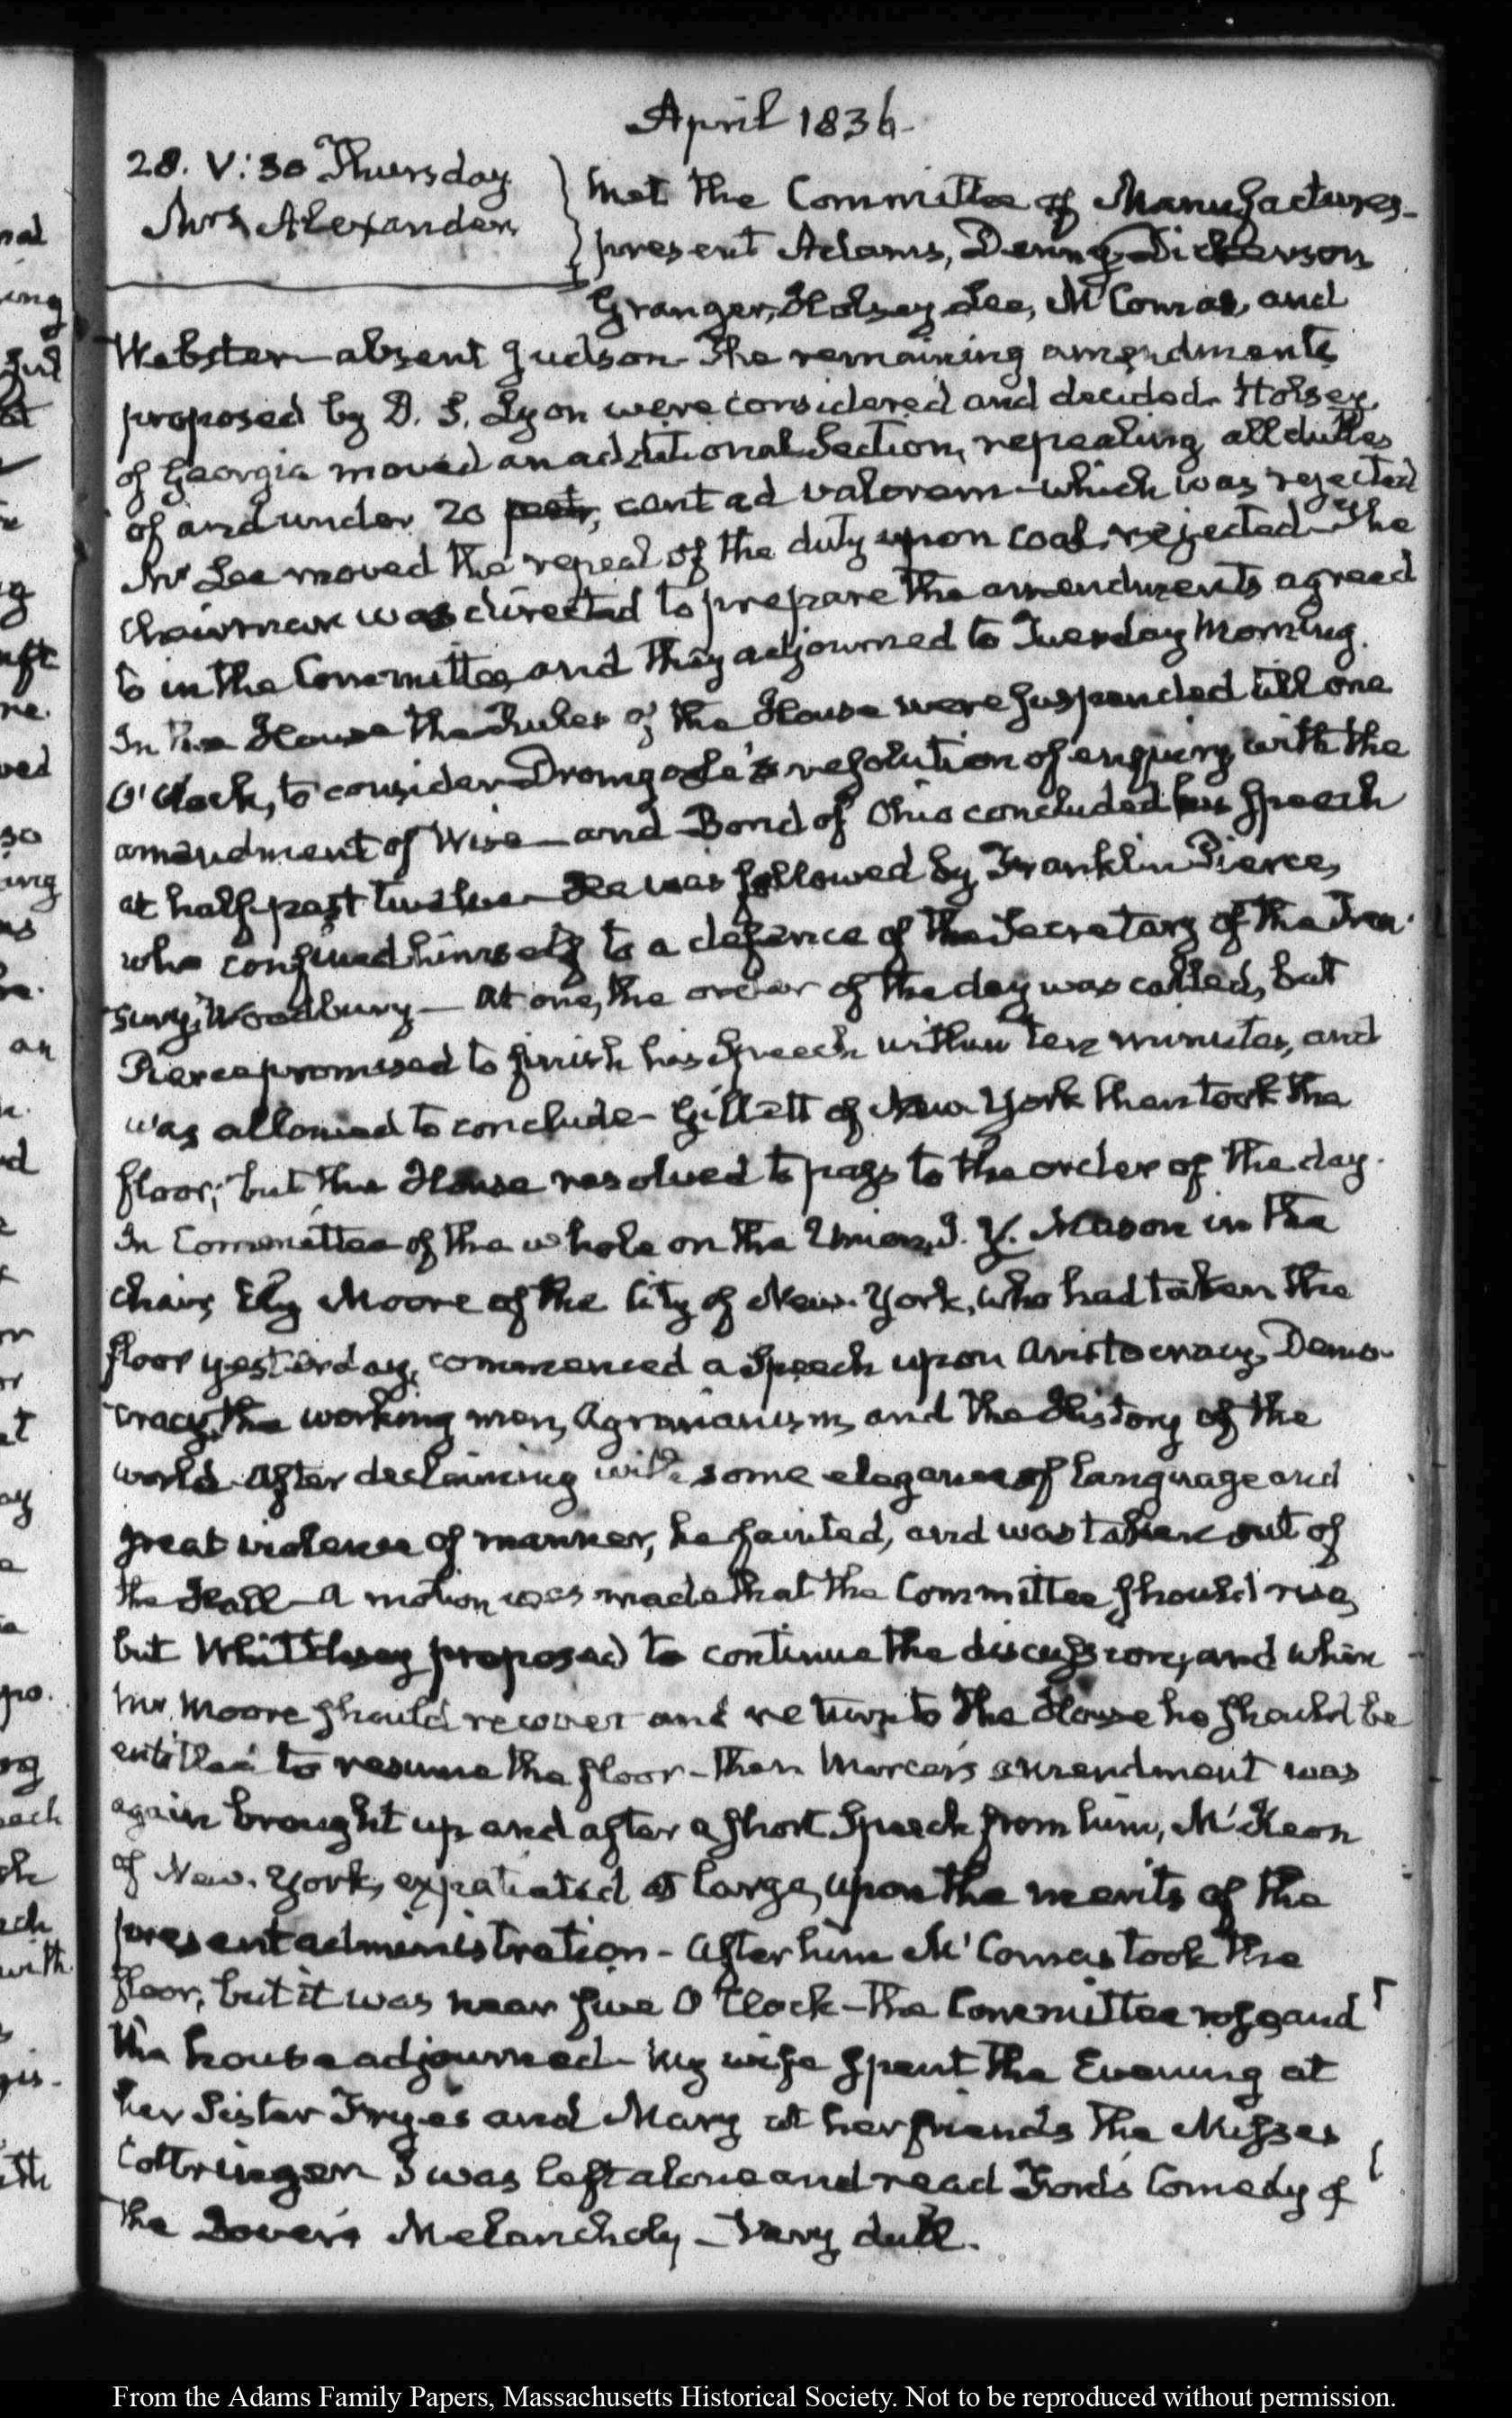 April 1836.
28. V:30 Thursday
Mrs Alexander
Met the Committee of Manufactures-
present Adams, Denny Dickerson
Granger, Holsey Lee, McComas, and
Webster—absent Judson. The remaining amendments
proposed by D. S. Lyon were considered and decided. Holsey
of Georgia moved an additional Section, repealing all duties
of and under 20 cent ad valorem—which was rejected
Mr Lee moved the repeal of the duty upon coal, rejected—The
Chairman was directed to prepare the amendments agreed
to in the Committee, and they adjourned to Tuesday Morning.
In the House the Rules of the House were suspended till one
O'Clock, to consider Dromgoole's resolution of enquiry with the
amendment of Wise—and Bond of Ohio concluded his speech
at half past twelve—He was followed by Franklin Pierce,
who confined himself to a defence of the Secretary of the Trea-
sury, Woodbury— At one, the order of the day was called, but
Pierce promised to finish his speech within ten minutes, and
was allowed to conclude- Gillett of New-York then took the
floor; but the House resolved to pass to the order of the day.
In Committee of the whole on the Union, J. Y. Mason in the
chair, Ely Moore of the City of New-York, who had taken the
floor yesterday, commenced a Speech upon Aristocracy, Demo-
cracy, the working men, Agrarianism, and the History of the
world. After declaiming with some elegance of language and
great violence of manner, he fainted, and was taken out of
the Hall—A motion was made that the Committee should rise,
but Whittlesey proposed to continue the discussion, and when
Mr Moore should recover and return to the House he should be
entitled to resume the floor—then Mercer's amendment was
again brought up and after a short Speech from him, McKeon
of New-York, expatiated at large, upon the merits of the
present administration- After him McComas took the
floor, but it was near five O'Clock—the Committee rose and
the house adjourned- My wife spent the Evening at
her Sister Frye's and Mary at her friends the Misses
Cottringer. I was left alone and read Ford's Comedy of
the Lover's Melancholy—Very dull.
From the Adams Family Papers, Massachusetts Historical Society. Not to be reproduced without permission.